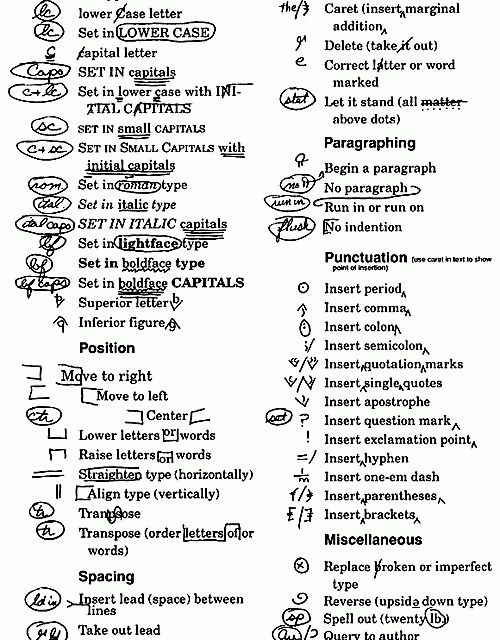 lc lower Case letter
lc Set in LOWER CASE
C capital letter
Caps SET IN capitals
c+lc Set in lower case with INI-
TIAL CAPITALS
sc SET IN small CAPITALS
c+sc SET IN SMALL CAPITALS with
initial capitals
rom Set in roman type
ital Set in italic type
ital caps SET IN ITALIC capitals
lf Set in lightface type
bf Set in boldface type
bf caps Set in boldface CAPITALS
Superior letter b
Inferior figure
Position
Move to right
Move to left
ctr Center
Lower letters or words
Raise letters or words
Straighten type (horizontally)
Align type (vertically)
tr Transpose
tr Transpose (order letters of or
words)
Spacing
ld in Insert lead (space) between
lines
Take out lead
the/ Caret (insert marginal
addition
Delete (take it out)
e Correct letter or word
marked
stet Let it stand (all matter
above dots)
Paragraphing
Begin a paragraph
no ¶ No paragraph
run in Run in or run on
flush No indention
Punctuation (use caret in text to show
point of insertion)
Insert period
Insert comma
Insert colon
;/ Insert semicolon
Insert quotation marks
Insert single quotes
Insert apostrophe
set ? Insert question mark
! Insert exclamation point
=/ Insert hyphen
Insert one-em dash
Insert parentheses
Insert brackets
Miscellaneous
Replace broken or imperfect
type
Reverse (upside down type)
sp Spell out (twenty lb.)
Query to author